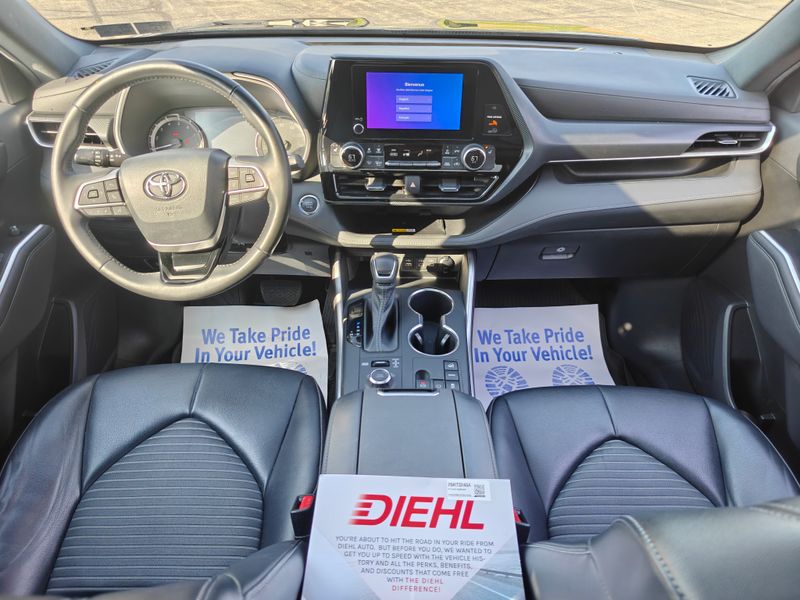 Bienvenue
English
Español
Français
We Take Pride
In Your Vehicle!
We Take Pride
In Your Vehicle!
DIEHL
YOU'RE ABOUT TO HIT THE ROAD IN YOUR RIDE FROM
DIEHL AUTO. BUT BEFORE YOU DO, WE WANTED TO
GET YOU UP TO SPEED WITH THE VEHICLE HIS-
TORY AND ALL THE PERKS, BENEFITS,
AND DISCOUNTS THAT COME FREE
WITH THE DIEHL
DIFFERENCE!